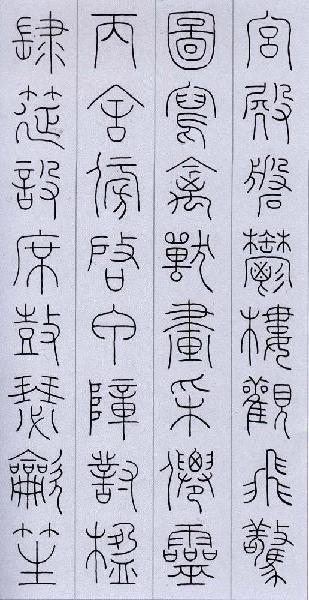 宮殿磐鬱樓觀飛驚
圖寫禽獸畫采僊靈
丙舍傍启甲障對楹
肆筵設席鼓瑟龡笙